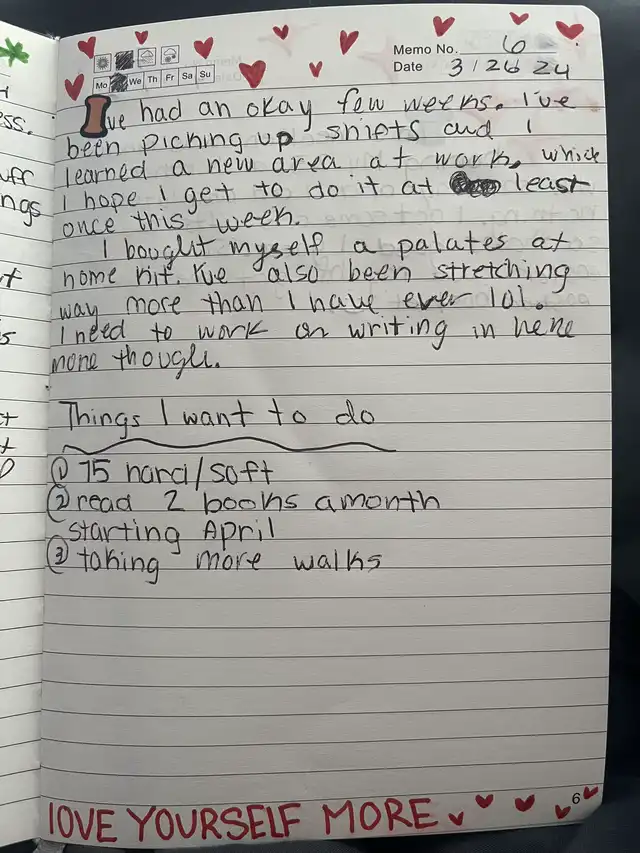 ess.
uff
ngs
Memo No. 6
Date 3/26 24
Mo We Th Fr Sa Su
I've had an okay few weeks. I've
been picking up shifts and I
learned a new area at work, which
I hope I get to do it at least
once this week.
I bought myself a palates at
home kit. I've also been stretching
way more than I have ever lol.
I need to work on writing in here
more though.
Things I want to do
① 75 hard/soft
② read 2 books a month
starting April
③ taking more walks
6
lOVE YOURSELF MORE